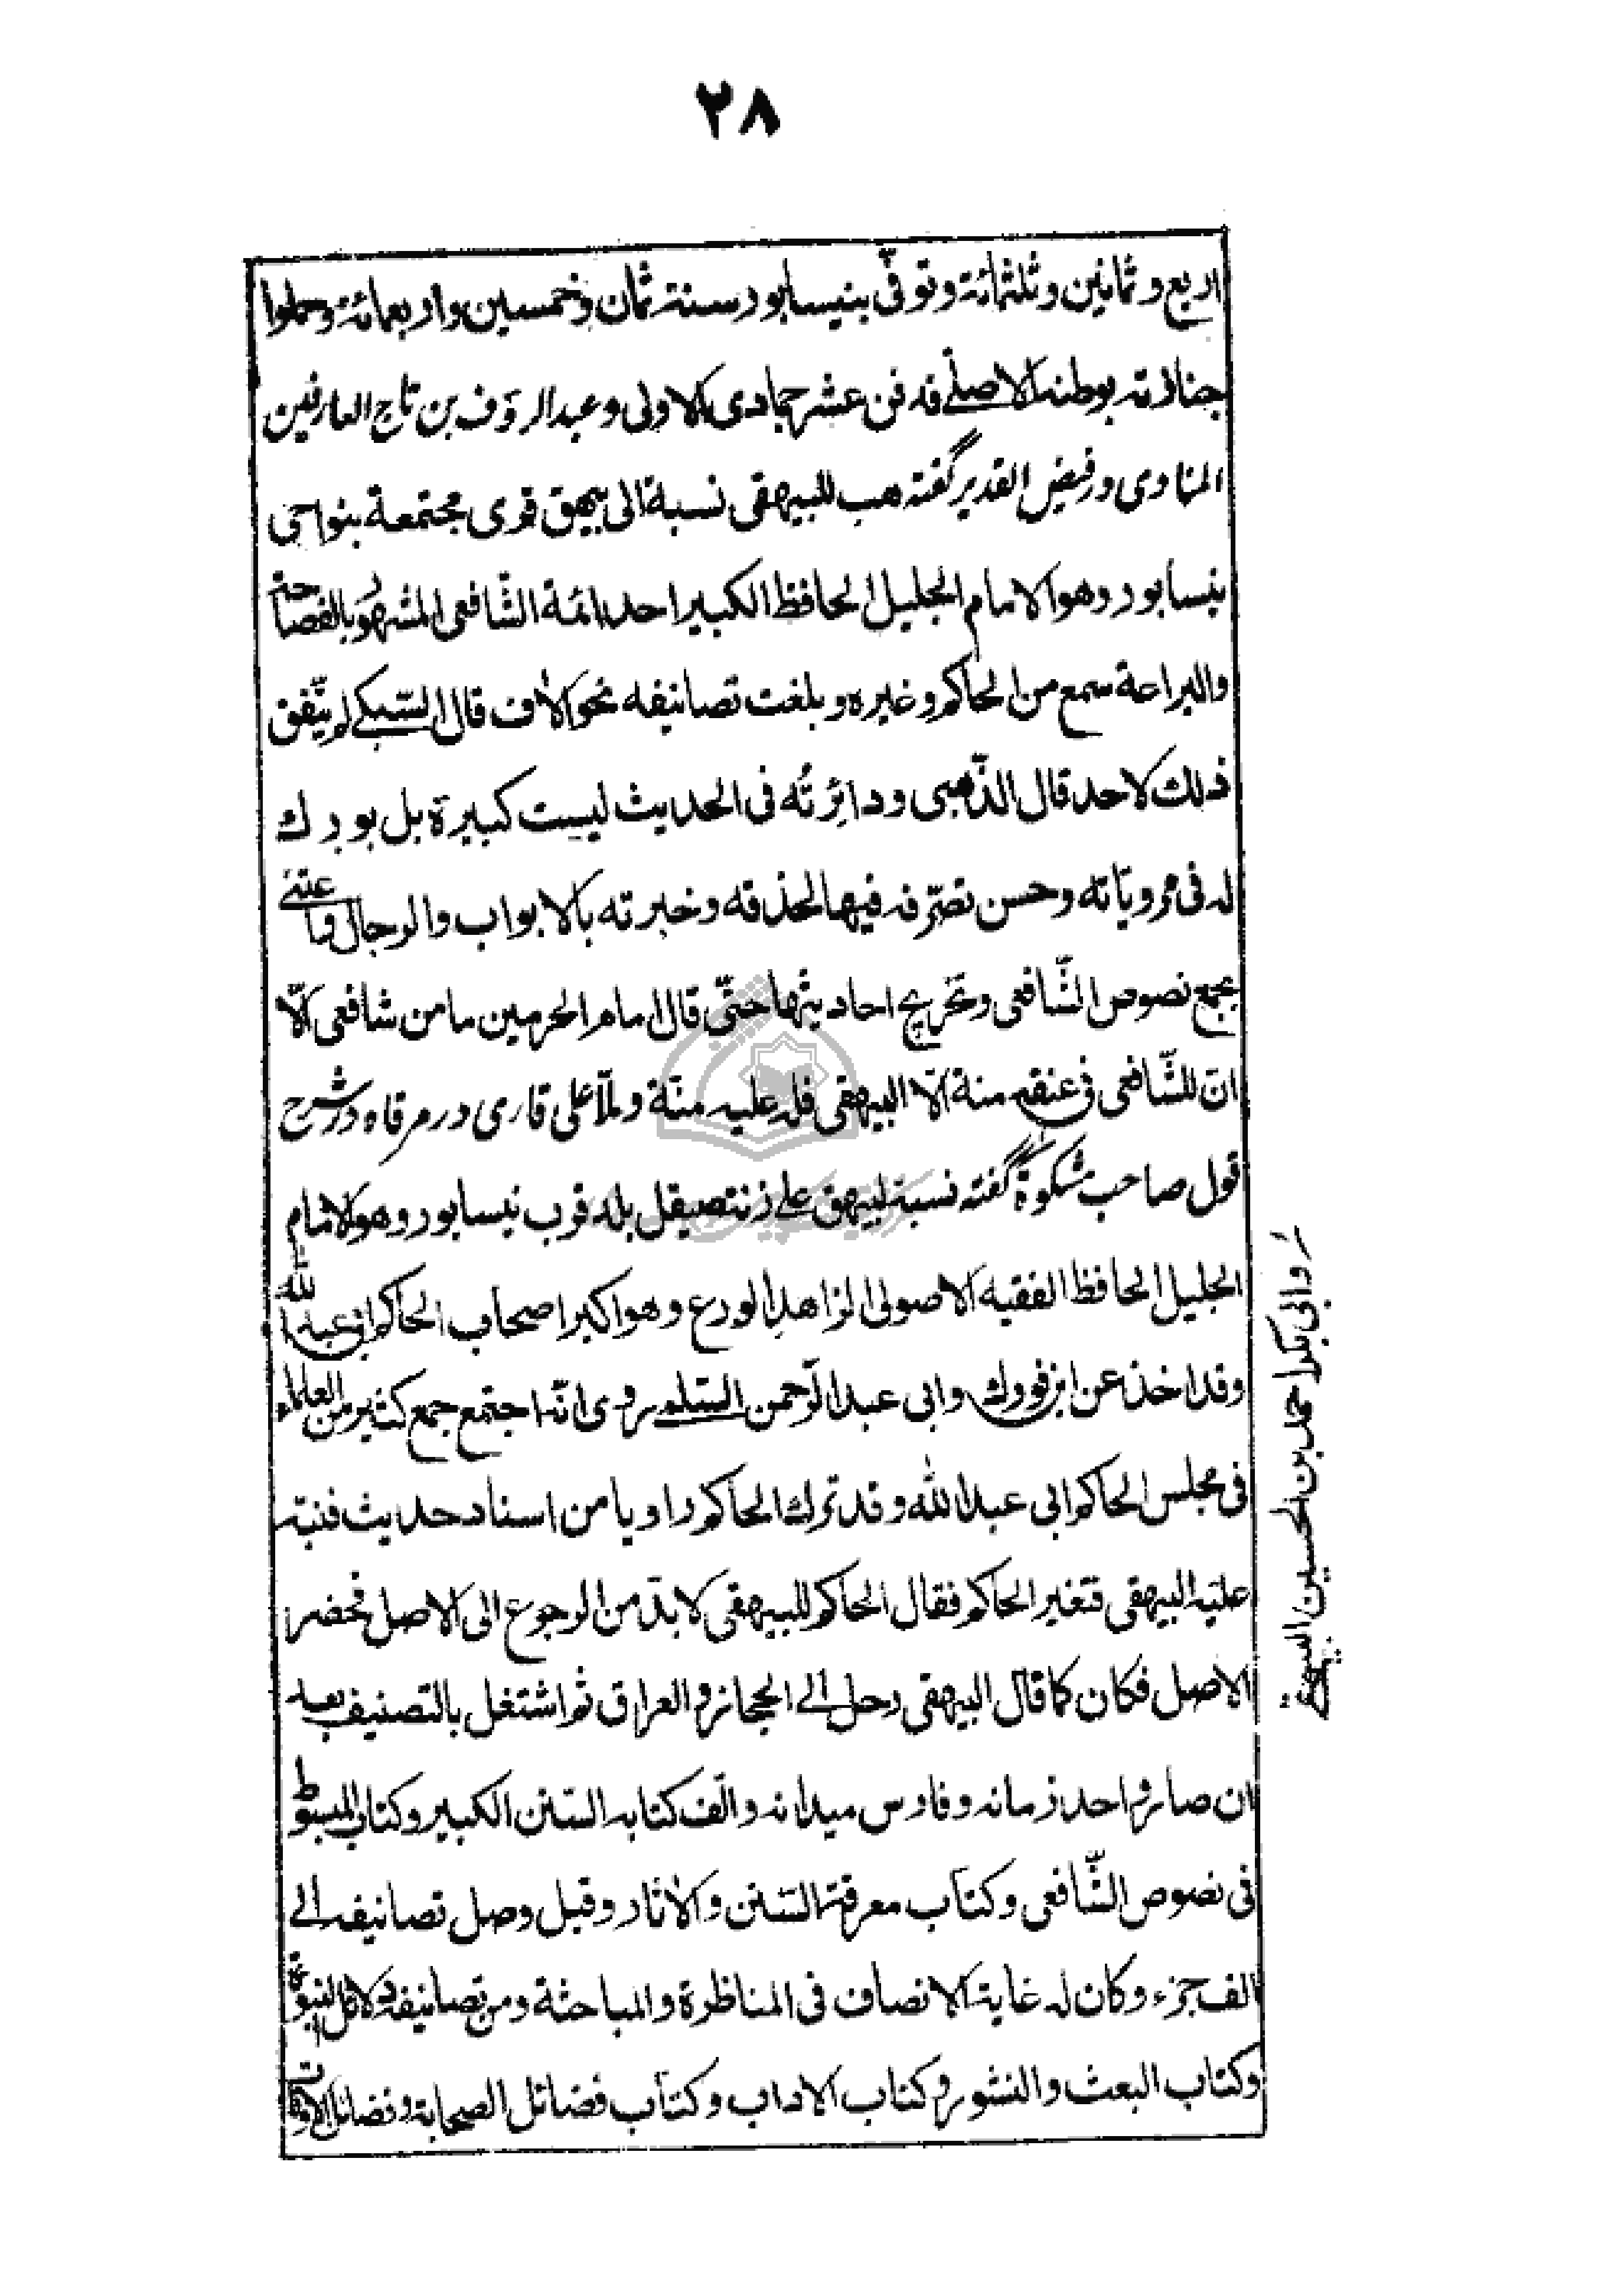 ٢٨
اربع و ثمانين و ثلثمائة و توفّى بنيسابور سنة ثمان و خمسين و اربعمائة و حملوا
جنازته بوطنه الاصلے فدفن عشر جمادى الاولى و عبد الرؤف بن تاج العارفين
المناوى در فيض القدير گفته هب للبيهقى نسبة الى بيهق قرى مجتمعة بنواحى
بنيسابور و هو الامام الجليل الحافظ الكبير احد ائمة الشّافعى المشهور بالفصاحة
والبراعة سمع من الحاكم و غيره و بلغت تصانيفه نحو الاف قال السّبكے لم يتّفق
ذلك لاحد قال الذّهبى و دائرتُه فى الحديث ليست كبيرة بل بورك
له فى مرويّاته و حسن تصرّفه فيها لحذقه و خبرته بالابواب والرجال و اعتنے
بجمع نصوص الشّافعى و تخريج احاديثها حتّى قال امام الحرمين ما من شافعى الّا
انّ للشّافعى فى عنقه منة الّا البيهقى فله عليه منّة و ملّا على قارى در مرقاه در شرح
قول صاحب مشكوة گفته نسبة لبيهق على زنة صيقل بلد قرب نيسابور و هو الامام
الجليل الحافظ الفقيه الاصولى الزاهد الورع و هو اكبر اصحاب الحاكم ابى عبد الله
و قد اخذ عن ابن فورك و ابى عبد الرّحمن السّلمے روى انّه اجتمع جمع كثير من العلماء
فى مجلس الحاكم ابى عبد الله و قد ترك الحاكم راويا من اسناد حديث فنبّه
عليه البيهقى فتغير الحاكم فقال الحاكم للبيهقى لا بدّ من الرجوع الى الاصل فحضر
الاصل فكان كما قال البيهقى رحل الے الحجاز و العراق ثم اشتغل بالتصنيف بعد
ان صار واحد زمانه و فارس ميدانه و الّف كتابه السّنن الكبير و كتاب المبسوط
فى نصوص الشّافعى و كتاب معرفة السّنن و الاثار و قيل وصل تصانيفه الے
الف جزء و كان له غاية الانصاف فى المناظرة والمباحثة و من تصانيفه دلائل النبوّة
و كتاب البعث والنشور و كتاب الاداب و كتاب فضائل الصحابة و فضائل الاوقات
و ابى بكر احمد بن الحسين البيهقے